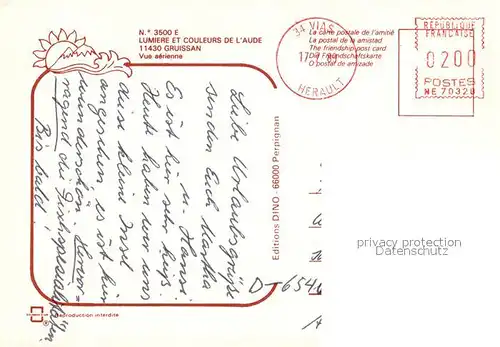 N.° 3500 E
LUMIERE ET COULEURS DE L'AUDE
11430 GRUISSAN
Vue aérienne
La carte postale de l'amitié
La postal de la amistad
The friendship post card
Die Freundschaftskarte
O postal de amizade
34 VIAS
17
HERAULT
RÉPUBLIQUE
FRANÇAISE
0200
POSTES
NE 70320
Liebe Urlaubsgrüße
senden Euch Martha
u. Hansi
Es ist hier sehr heiß.
Heute haben wir uns
diese kleine Insel
angesehen es ist hier
wunderschön. Hervor-
ragend die Fischspezialitäten.
Bis bald!
Editions DINO - 66000 Perpignan
D-654
privacy protection
Datenschutz
Reproduction interdite